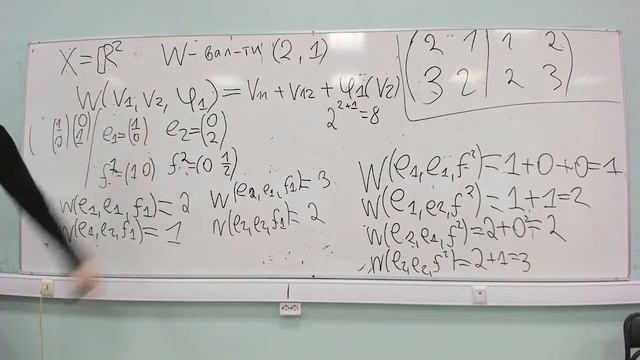 X = ℝ² W - вал-ти (2, 1)
W(v₁, v₂, φ₁) = v₁₁ + v₁₂ + φ₁(v₂)
2²⁺¹ = 8
(2 1 | 1 2
3 2 | 2 3)
(1 0) (0 1) e₁ = (1 0) e₂ = (0 2)
f¹ = (1 0) f² = (0 1/2)
W(e₁, e₁, f₁) = 2
W(e₁, e₂, f₁) = 1
W(e₂, e₁, f₁) = 3
W(e₂, e₂, f₁) = 2
W(e₁, e₁, f²) = 1 + 0 + 0 = 1
W(e₁, e₂, f²) = 1 + 1 = 2
W(e₂, e₁, f²) = 2 + 0 = 2
W(e₂, e₂, f²) = 2 + 1 = 3